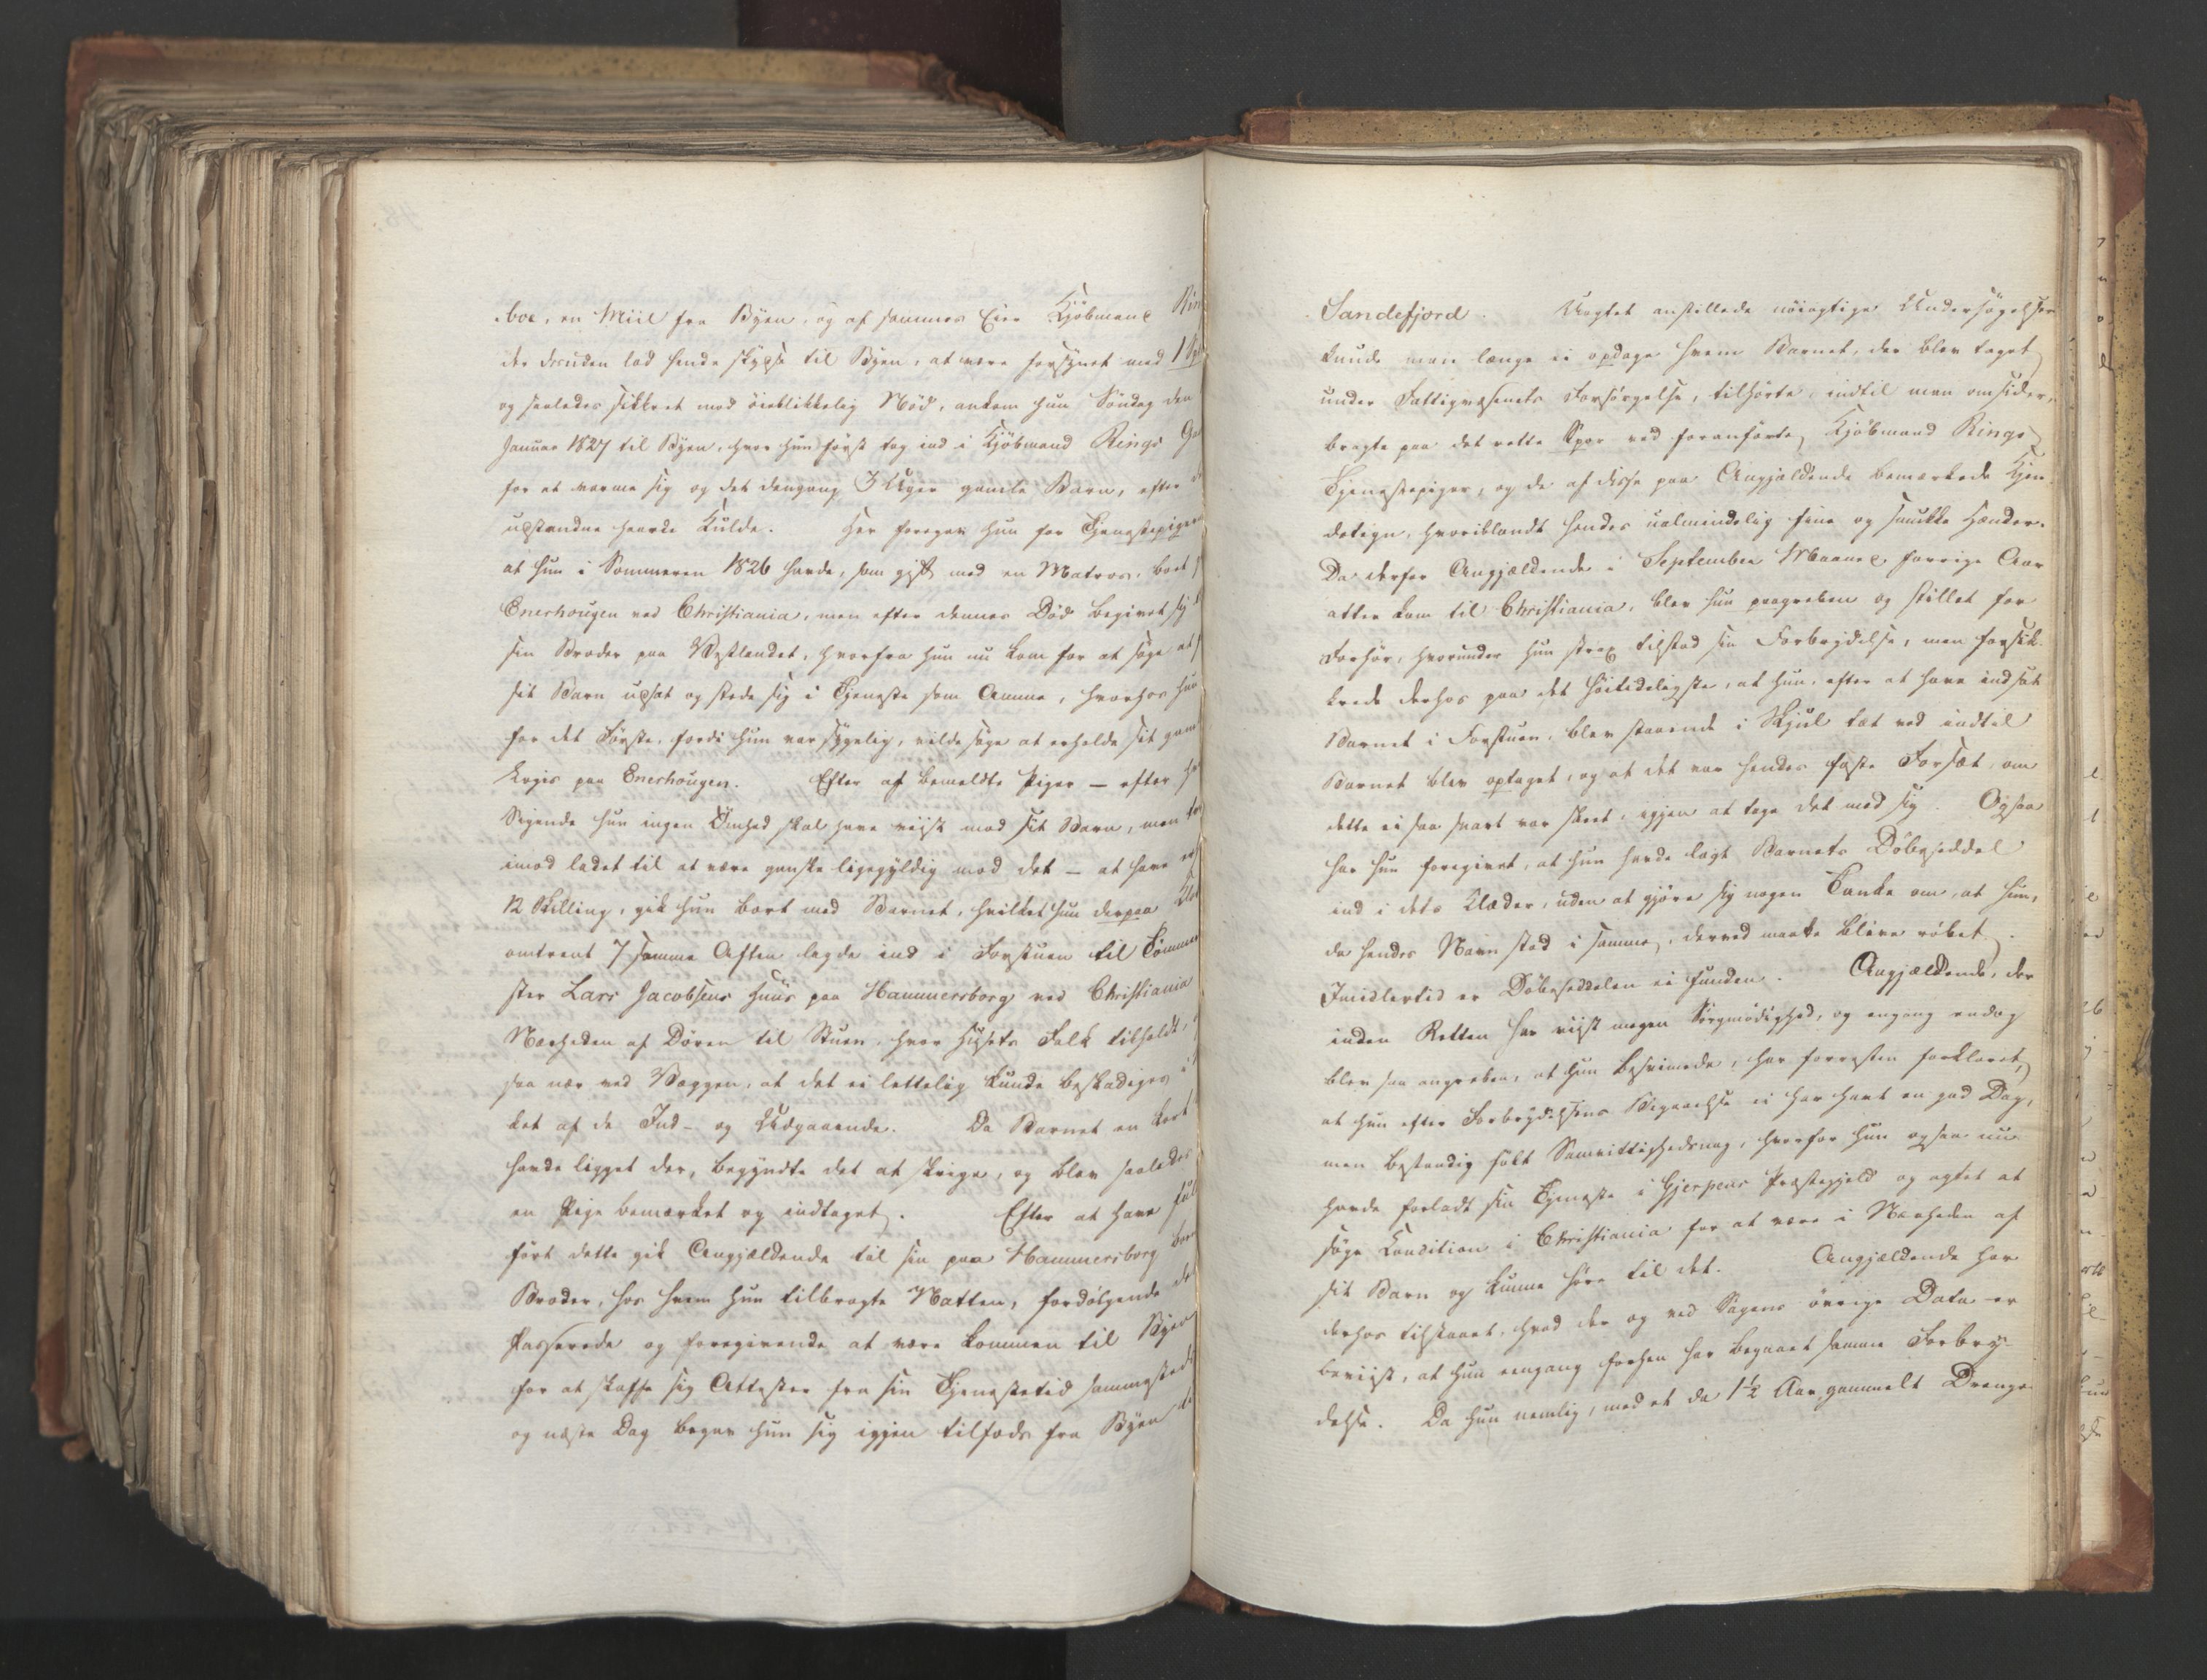 boe, en Miil fra Byen, og af sammes Eier Kjöbmand Rin
der desuden lod hende skydse til Byen, at være forsynet med 1 Spd
og saaledes sikkret mod öieblikkelig Nöd, ankom hun Söndag den
Januar 1827 til Byen, hvor hun först tog ind i Kjöbmand Rings Ga
for at varme sig og det dengang 3 Uger gamle Barn, efter
udstandne haarde Kulde. Her foregav hun for Tjenestepigerne
at hun i Sommeren 1826 havde, som gift med en Matros, boet
Enerhougen ved Christiania, men efter dennes Död begivet sig
sin Broder paa Vestlandet, hvorfra hun nu kom for at söge at
sit Barn udsat og stede sig i Tjeneste som Amme, hvorhos hun
for det Förste, fordi hun var sygelig, vilde söge at erholde sit gam
Logis paa Enerhougen. Efter af bemeldte Piger – efter
Sigende hun ingen Ömhed skal have viist mod sit Barn, men
imod ladet til at være ganske ligegyldig mod det – at have
12 Skilling, gik hun bort med Barnet, hvilket hun derpaa Klok
omtrent 7 samme Aften lagde ind i Forstuen til Tömmer
ster Lars Jacobsens Huus paa Hammersborg ved Christiania
Nærheden af Dören til Stuen, hvor Husets Folk tilholdt,
saa nær ved Væggen, at det ei lettelig kunde beskadiges
ket af de Ind- og Udgaaende. Da Barnet en kort
havde ligget der, begyndte det at skrige, og blev saaledes
en Pige bemærket og indtaget. Efter at have ful
fört dette gik Angjældende til sin paa Hammersborg boen
Broder, hos hvem hun tilbragte Natten, fordölgende de
Passerede og foregivende at være kommen til Byen
for at skaffe sig Attester fra sin Tjenestetid sammesteds
og næste Dag begav hun sig igjen tilfods fra Byen
Sandefjord. Uagtet anstillede nöiagtige Undersögelser
kunde man længe ei opdage hvem Barnet, der blev taget
under Fattigvæsenets Forsörgelse, tilhörte, indtil man omsider,
bragte paa det rette Spor ved foranförte Kjöbmand Rings
Tjenestepiger, og de af disse paa Angjældende bemærkede Kjen-
detegn, hvoriblandt hendes ualmindelig fine og smukke Hænder.
Da derfor Angjældende i September Maaned forrige Aar
atter kom til Christiania, blev hun paagreben og stillet for
Forhör, hvorunder hun strax tilstod sin Forbrydelse, men forsik-
krede derhos paa det höitideligste, at hun, efter at have indsat
Barnet i Forstuen, blev staaende i Skjul tæt ved indtil
Barnet blev optaget, og at det var hendes faste Forsæt, om
dette ei saa snart var skeet, igjen at tage det med sig. Ogsaa
har hun foregivet, at hun havde lagt Barnets Döbeseddel
ind i dets Klæder, uden at gjöre sig nogen Tanke om, at hun,
da hendes Navn stod i samme, derved maatte blive röbet.
Imidlertid er Döbeseddelen ei funden. Angjældende, der
inden Retten har viist megen Sörgmodighed, og engang endog
blev saa angreben, at hun besvimede, har forresten forklaret,
at hun efter Forbrydelsens Begaaelse ei har havt en god Dag,
men bestandig fölt Samvittighedsnag, hvorfor hun ogsaa nu
havde forladt sin Tjeneste i Gjerpens Præstegjeld og agtet at
söge Condition i Christiania for at være i Nærheden af
sit Barn og kunne höre til det. Angjældende har
derhos tilstaaet, hvad der og ved Sagens övrige Data er
beviist, at hun eengang forhen har begaaet samme Forbry-
delse. Da hun nemlig, med et da 1½ Aar gammelt Drenge-